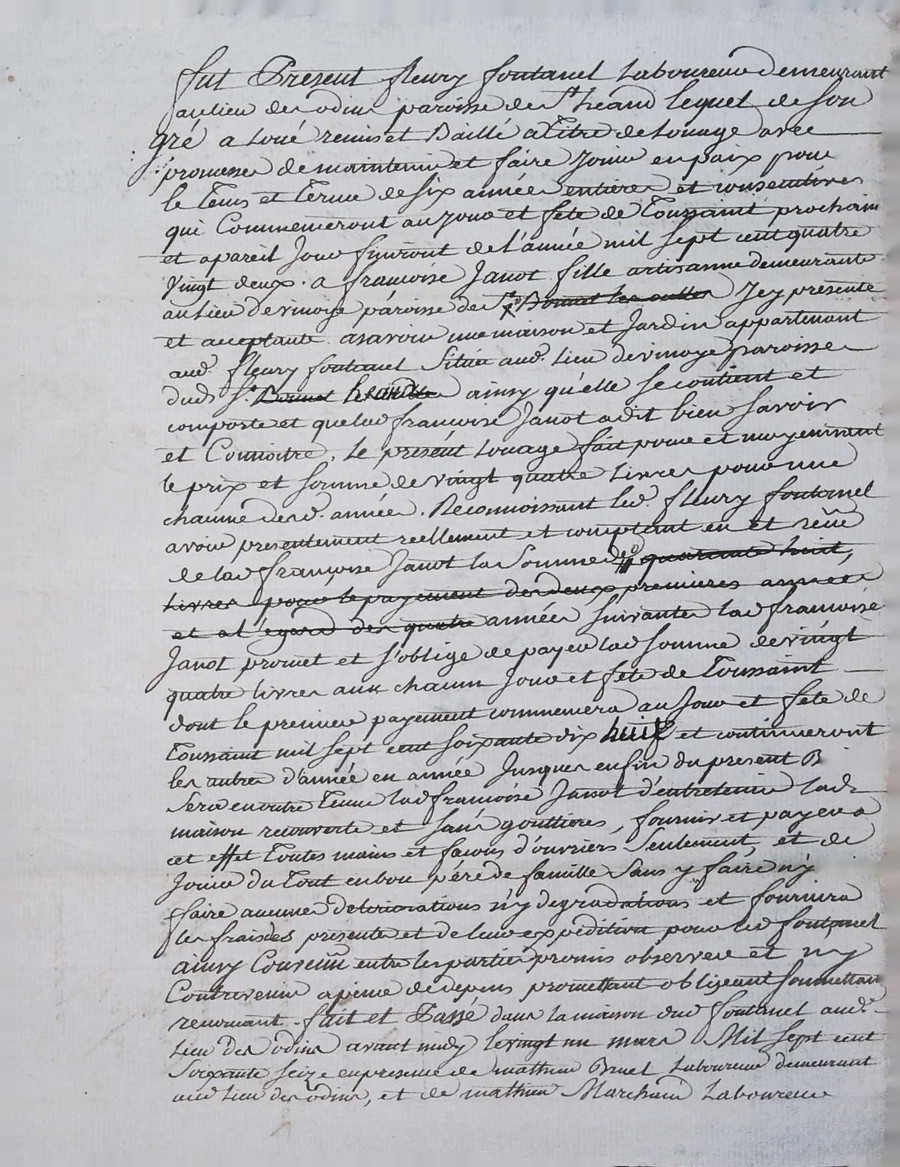 fut Present fleury fontanel Laboureur demeurant
au lieu des odins paroisse de St heand lequel de son
gré a Loué remis et Baillé a Titre de Louage avec
promesse de maintenir et faire Jouir en paix pour
le Tems et Terme de six années entieres et consecutives
qui Commenceront au jour et fete de Toussaint prochain
et apareil Jour finiront de l'année mil sept cent quatre
vingt deux. a francoise Janot fille artisanne demeurante
au lieu de vinoye paroisse de St Bonnet les oulles Icy presente
et acceptante asavoir une maison et Jardin appartenant
aud. fleury fontanel Situés aud. lieu de vinoye paroisse
dud. St. Bonnet les oulles ainsy qu'elle se contient et
comporte et que lad francoise Janot a dit bien savoir
et Connoitre. Le présent Louage fait pour et moyennant
le prix et somme de vingt quatre Livres pour une
chacune desd. années. Reconnoissant led. fleury fontanel
avoir presentement reellement et comptant eu et reçû
de lad françoise Janot la Somme de quarante huit
Livres pour le payement des deux premieres années
et a l'égard des quatre années suivantes lad francoise
Janot promet et s'oblige de payer lad somme de vingt
quatre livres aux chacun Jour et féte de Toussaint
dont le premier payement commencera au Jour et féte de
Toussaint mil sept cent soixante dix huit et continueront
les autres d'année en année Jusques en fin du present B
Sera en outre Tenue lad francoise Janot d'entretenir lad.
maison recouverte et sans gouttieres, fournir et payer a
cet effet Toutes mains et facons d'ouvriers Seulement, et de
Jouir du Tout en bon pére de famille sans y faire n'y
faire aucunes deteriorations n'y degradations et fournira
les frais des presentes et de leur expédition pour led fontanel
ainsy Convenû entre les parties promis observer et n'y
Contrevenir a peine de depens promettant obligeant soumettant
renoncant. fait et Passé dans la maison dud fontanel aud.
Lieu des odins avant midy le vingt un mars Mil sept cent
Soixante seize en presence de mathieu Brunel Laboureur demeurant
aud Lieu des odins, et de mathieu Marchand Laboureur